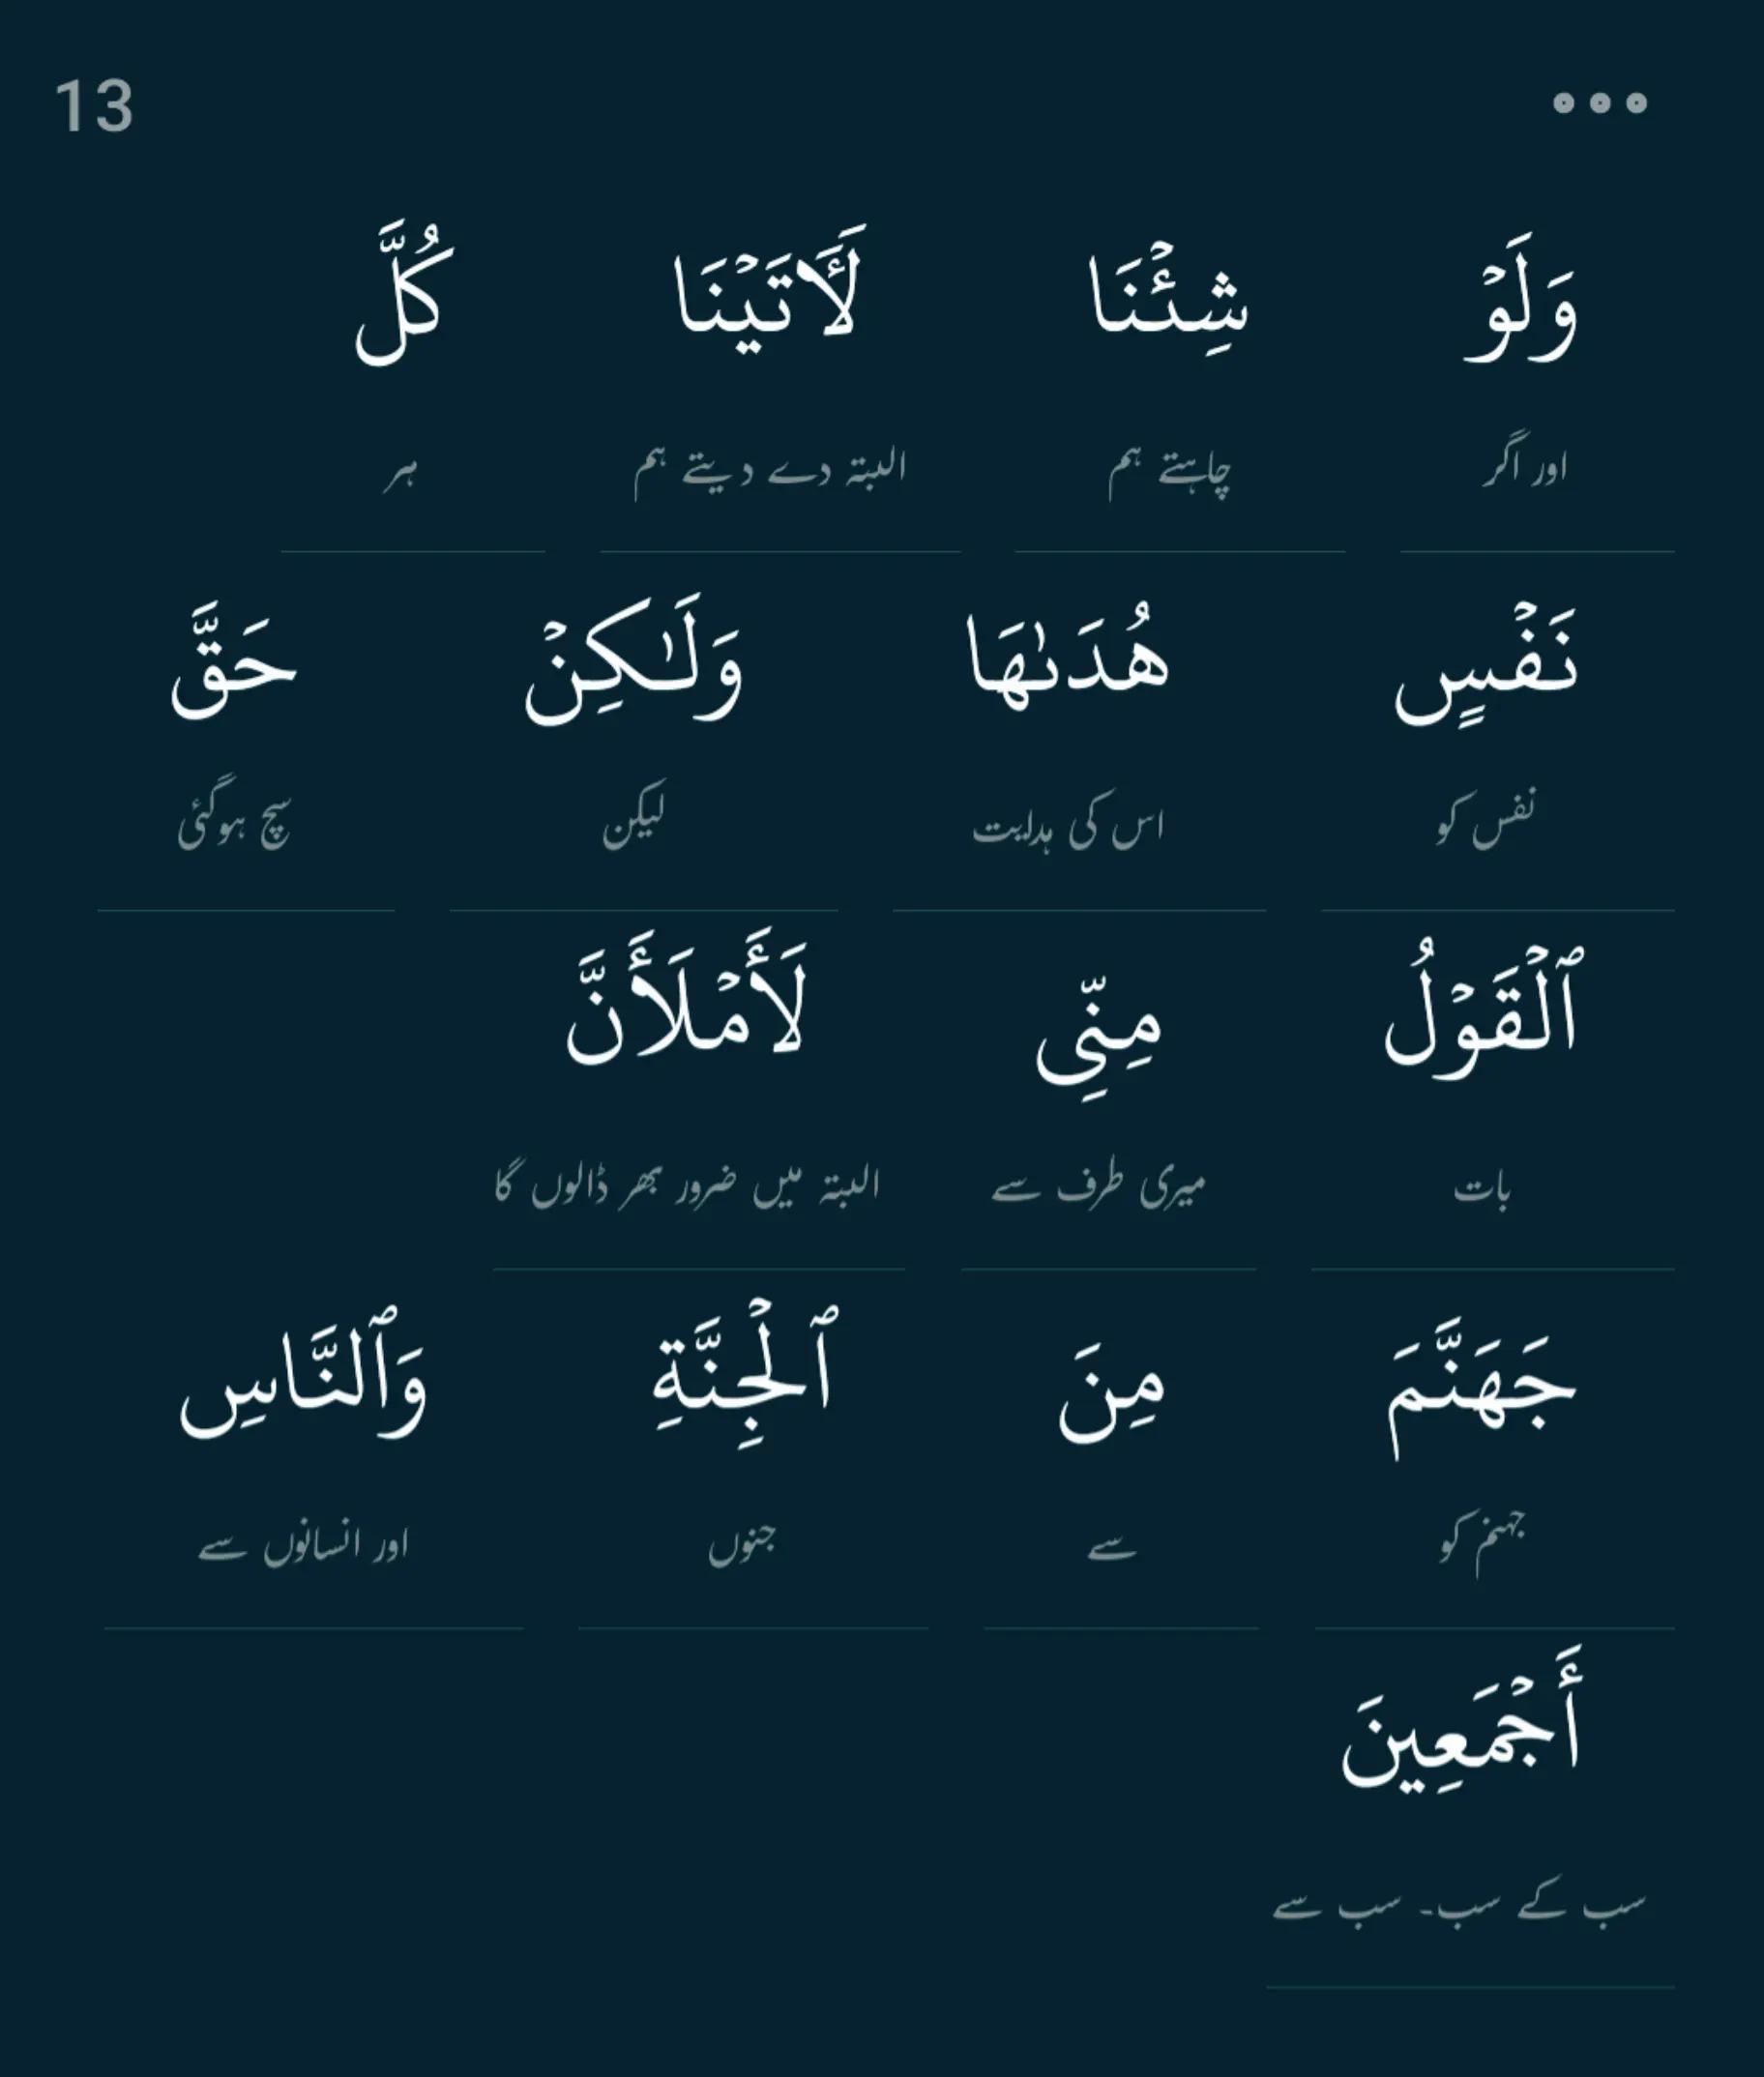 13
وَلَوۡ شِئۡنَا لَأٓتَيۡنَا كُلَّ
اور اگر چاہتے ہم البتہ دے دیتے ہم ہر
نَفۡسٍ هُدَىٰهَا وَلَٰكِنۡ حَقَّ
نفس کو اس کی ہدایت لیکن سچ ہوگئی
ٱلۡقَوۡلُ مِنِّي لَأَمۡلَأَنَّ
بات میری طرف سے البتہ میں ضرور بھر ڈالوں گا
جَهَنَّمَ مِنَ ٱلۡجِنَّةِ وَٱلنَّاسِ
جہنم کو سے جنوں اور انسانوں سے
أَجۡمَعِينَ
سب کے سب۔ سب سے